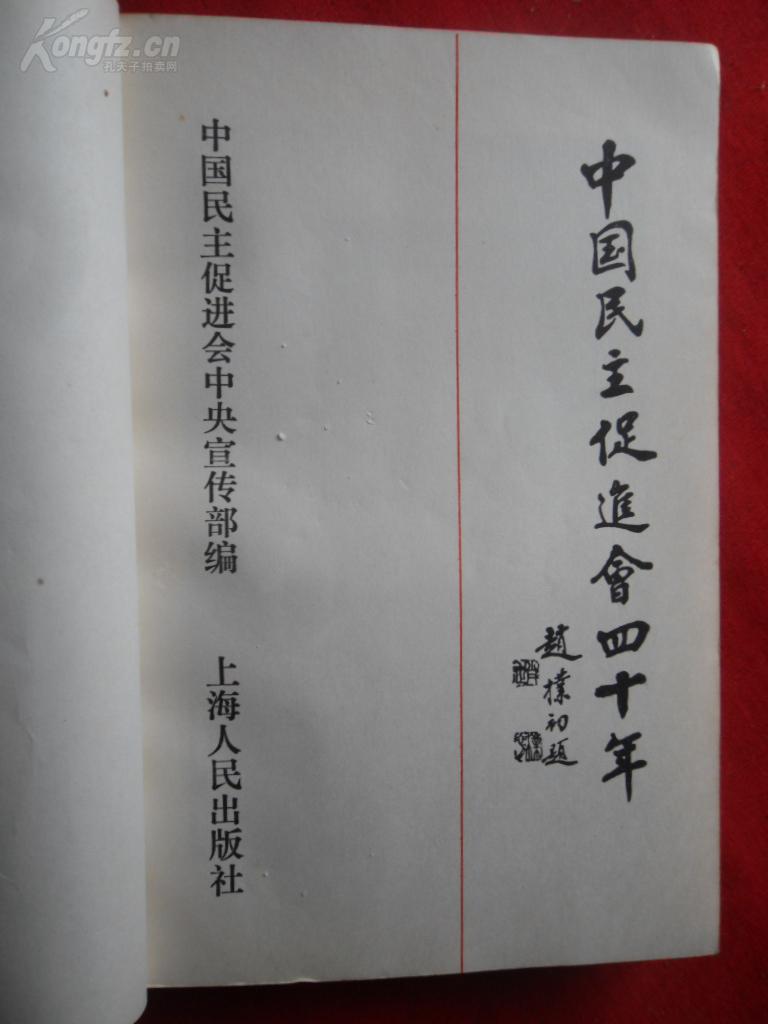 中国民主促進會四十年
趙樸初题
中国民主促进会中央宣传部编
上海人民出版社
Kongfz.cn
孔夫子拍卖网